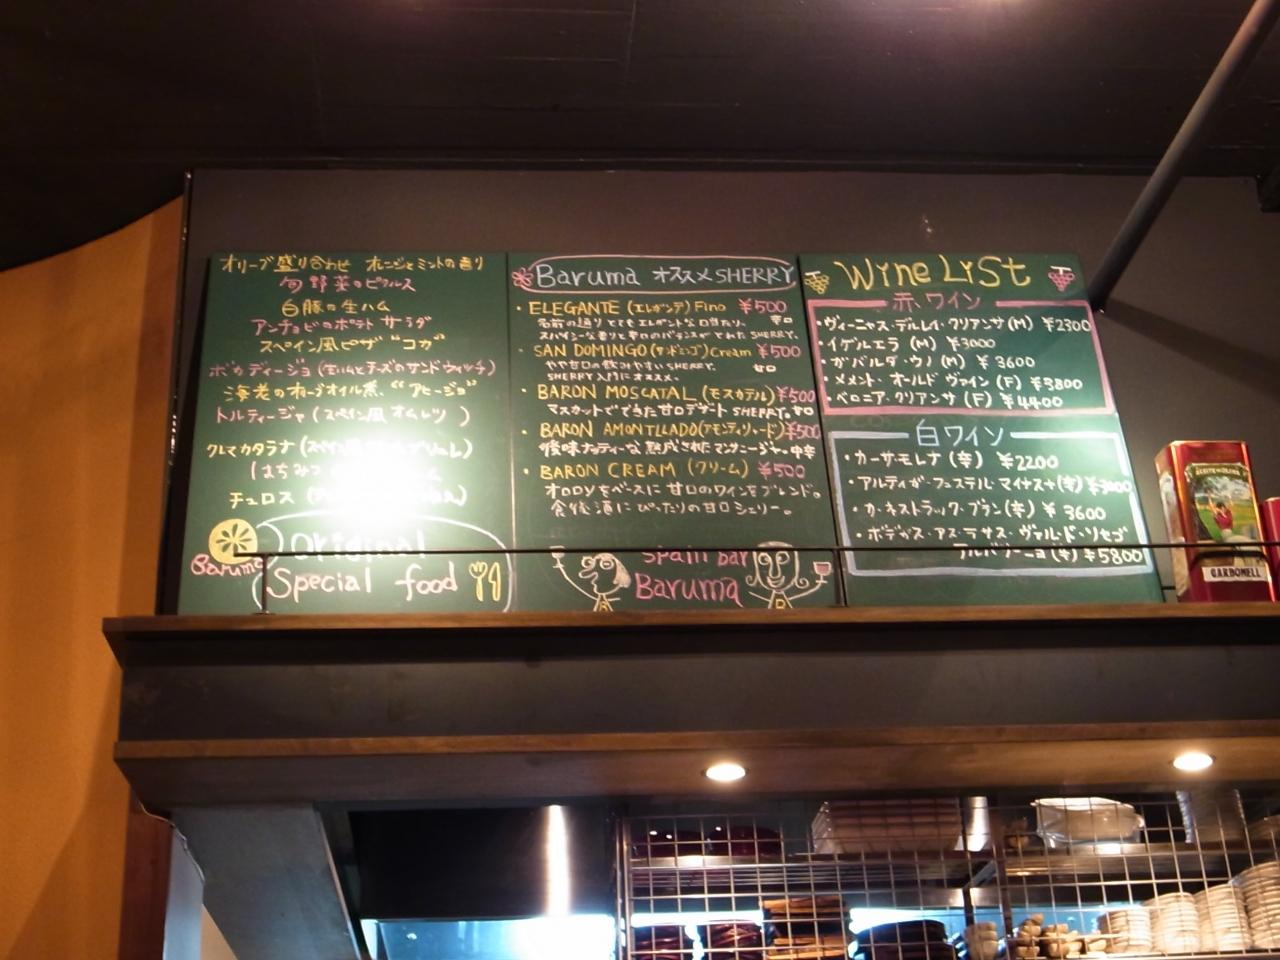 オリーブ盛り合わせ オレンジとミントの香り
旬野菜のピクルス
白豚の生ハム
アンチョビのポテトサラダ
スペイン風ピザ "コカ"
ボカディージョ (生ハムとチーズのサンドウィッチ)
海老のオリーブオイル煮 "アヒージョ"
トルティージャ (スペイン風オムレツ)
クレマカタラナ
はちみつ
チュロス
Baruma
Original
Special food
Baruma オススメ SHERRY
・ELEGANTE (エレガンテ) Fino ¥500
名前の通りとてもエレガントな口当たり。 辛口
スパイシーな香りと辛口のバランスがとれたSHERRY。
・SAN DOMINGO (サンドミンゴ) Cream ¥500
やや甘口の飲みやすいSHERRY。 甘口
SHERRY入門にオススメ。
・BARON MOSCATAL (モスカテル) ¥500
マスカットでできた甘口デザートSHERRY。甘口
・BARON AMONTILLADO (アモンティリャード) ¥500
後味ナッティーな熟成されたマンサニージャ。中辛
・BARON CREAM (クリーム) ¥500
オロロソをベースに甘口のワインをブレンド。
食後酒にぴったりの甘口シェリー。
Spain bar
Baruma
Wine List
赤ワイン
・ヴィーニャス・デルレイ・クリアンサ (M) ¥2300
・イゲルエラ (M) ¥3000
・ガバルダ・ウノ (M) ¥3600
・メメント・オールドヴァイン (F) ¥3800
・ベロニア・クリアンサ (F) ¥4400
白ワイン
・カーサモレナ (辛) ¥2200
・アルティガ・フェステル・マイナス+ (辛) ¥3000
・カ・ネストラック・ブラン (辛) ¥3600
・ボデガス・アス・ラサス・ヴァル・ド・ソセゴ
アルバリーニョ (辛) ¥5800
ACEITE DE OLIVA
CARBONELL